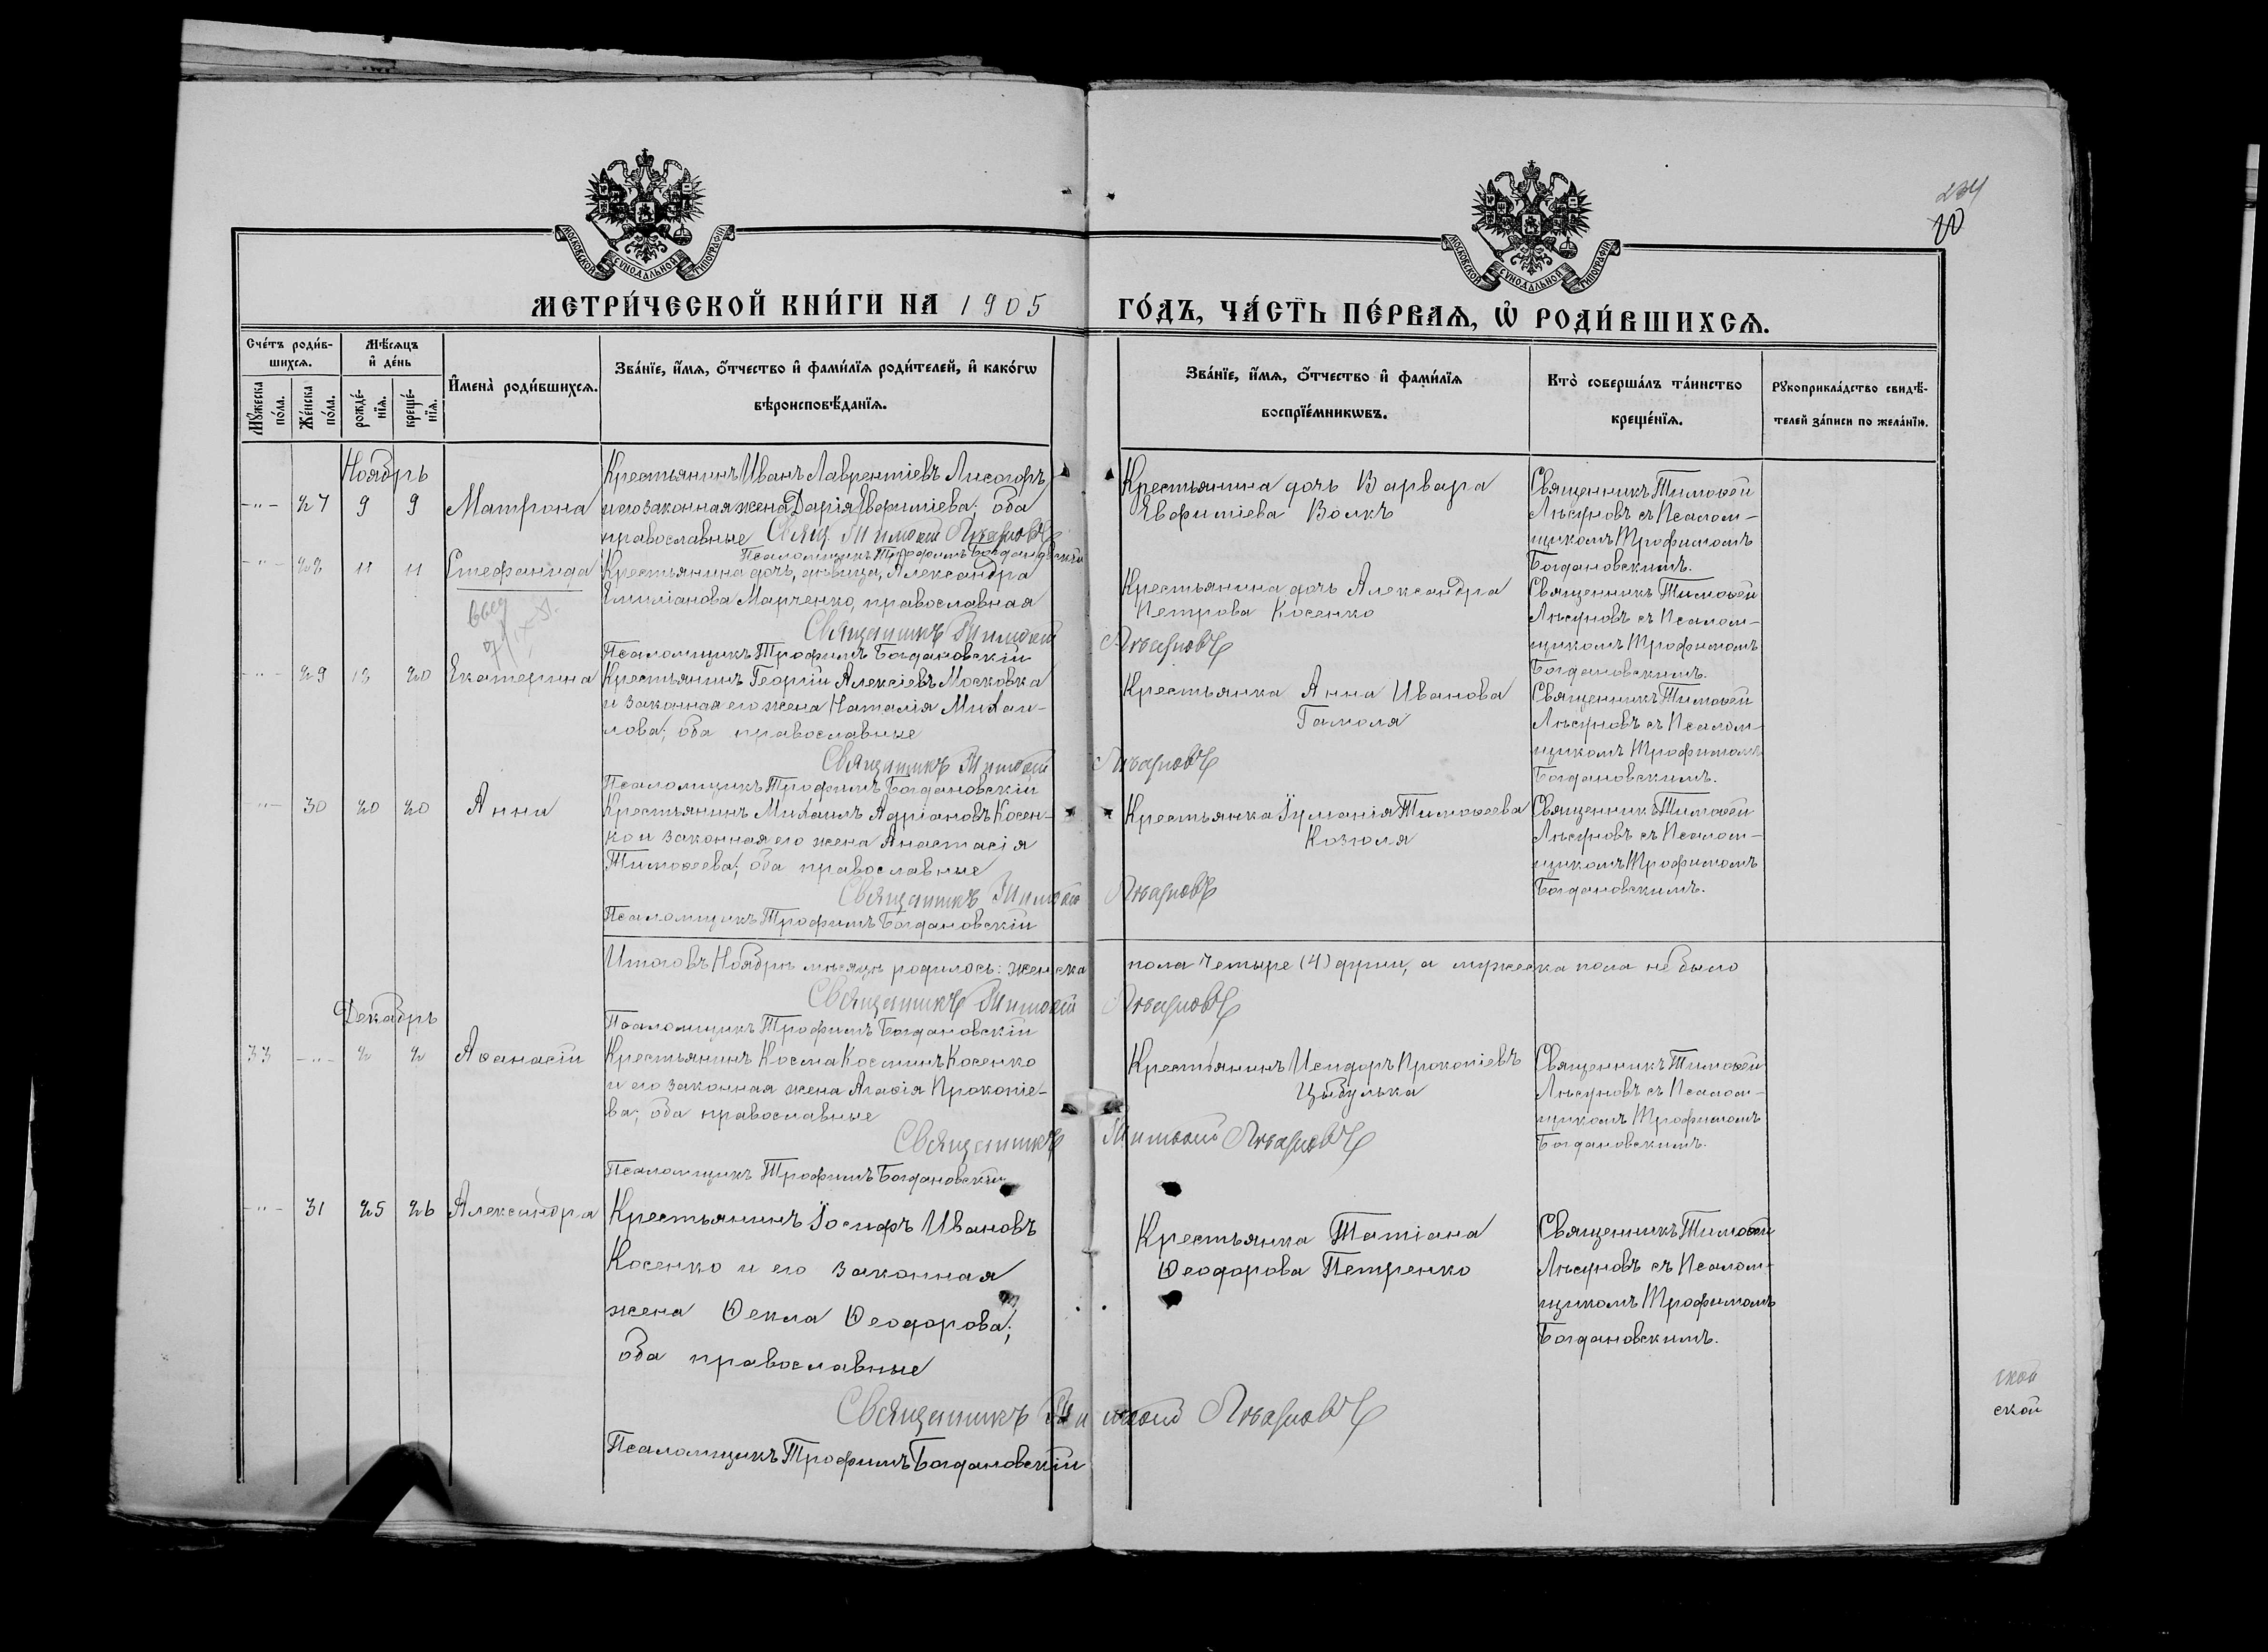 234
МОСКОВСКОЙ СѴНОДАЛЬНОЙ ТИПОГРАФІИ
МОСКОВСКОЙ СѴНОДАЛЬНОЙ ТИПОГРАФІИ
МЕТРИ́ЧЕСКОЙ КНИ́ГИ НА 1905
ГО́ДЪ, ЧА́СТЬ ПЕ́РВАѦ, Ѡ҆ РОДИ́ВШИХСѦ.
Сче́тъ роди́в-
шихсѧ.
Мꙋ́жеска по́ла.
Же́нска по́ла.
Мѣ́сѧцъ
и҆ де́нь
рожде́-
нїѧ.
креще́-
нїѧ.
И҆мена̀ роди́вшихсѧ.
Зва́нїе, и҆́мѧ, ѻ҆́тчество и҆ фами́лїѧ роди́телей, и҆ како́гѡ
вѣроисповѣ́данїѧ.
Зва́нїе, и҆́мѧ, ѻ҆́тчество и҆ фами́лїѧ
воспрїе́мникѡвъ.
Кто̀ соверша́лъ та́инство
креще́нїѧ.
Рꙋкоприкла́дство свидѣ́-
телей за́писи по жела́нїю.
Ноябрь
-"- 27 9 9 Матрона
Крестьянинъ Иванъ Лаврентіевъ Лисогоръ
и его законная жена Дарія Евфиміева; оба
православные Свящ. Тимоѳей Лѣсуновъ
Псаломщикъ Трофимъ Богдановскій
Крестьянина дочь Варвара
Евфиміева Волкъ
Священникъ Тимоѳей
Лѣсуновъ съ Псалом-
щикомъ Трофимомъ
Богдановскимъ.
-"- 28 11 11 Стефанида
Крестьянина дочь, дѣвица, Александра
Емиліанова Марченко, православная
Священникъ Тимоѳей Лѣсуновъ
Псаломщикъ Трофимъ Богдановскій
Крестьянина дочь Александра
Петрова Косенко
Священникъ Тимоѳей
Лѣсуновъ съ Псалом-
щикомъ Трофимомъ
Богдановскимъ.
-"- 29 18 20 Екатерина
Крестьянинъ Георгій Алексіевъ Московка
и законная его жена Наталія Михаи-
лова; оба православные
Священникъ Тимоѳей Лѣсуновъ
Псаломщикъ Трофимъ Богдановскій
Крестьянка Анна Иванова
Гамоля
Священникъ Тимоѳей
Лѣсуновъ съ Псалом-
щикомъ Трофимомъ
Богдановскимъ.
-"- 30 20 20 Анна
Крестьянинъ Михаилъ Адріановъ Косен-
ко и законная его жена Анастасія
Тимоѳеева; оба православные
Священникъ Тимоѳей Лѣсуновъ
Псаломщикъ Трофимъ Богдановскій
Крестьянка Іуліанія Тимоѳеева
Козюля
Священникъ Тимоѳей
Лѣсуновъ съ Псалом-
щикомъ Трофимомъ
Богдановскимъ.
Итого въ Ноябрѣ мѣсяцѣ родилось: женска пола четыре (4) души, а мужеска пола не было
Священникъ Тимоѳей Лѣсуновъ
Псаломщикъ Трофимъ Богдановскій
Декабрь
33 -"- 2 2 Аѳанасій
Крестьянинъ Косма Косминъ Косенко
и его законная жена Агаѳія Прокопіе-
ва; оба православные
Священникъ Тимоѳей Лѣсуновъ
Псаломщикъ Трофимъ Богдановскій
Крестьянинъ Исидоръ Прокопіевъ
Цыбулька
Священникъ Тимоѳей
Лѣсуновъ съ Псалом-
щикомъ Трофимомъ
Богдановскимъ.
-"- 31 25 26 Александра
Крестьянинъ Іосифъ Ивановъ
Косенко и его законная
жена Ѳекла Ѳеодорова;
оба православные
Священникъ Тимоѳей Лѣсуновъ
Псаломщикъ Трофимъ Богдановскій
Крестьянка Татіана
Ѳеодорова Петренко
Священникъ Тимоѳей
Лѣсуновъ съ Псалом-
щикомъ Трофимомъ
Богдановскимъ.
ской
ской